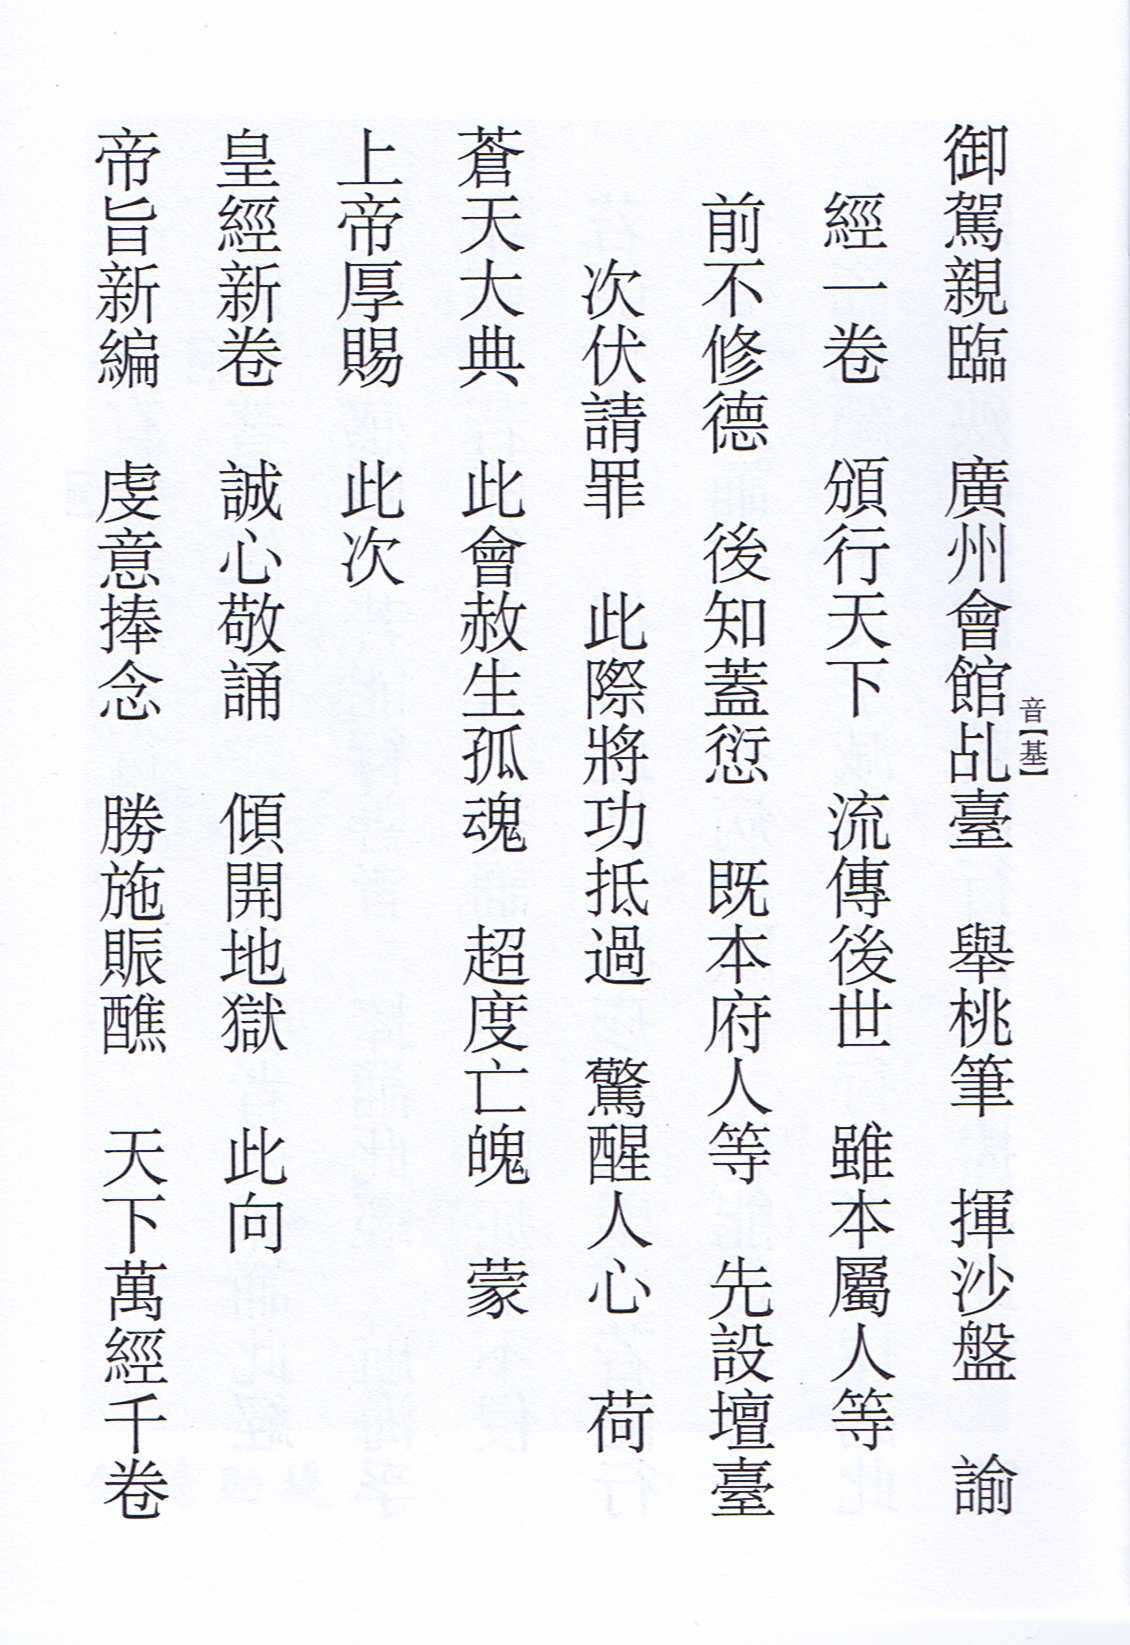 御駕親臨　廣州會館乩臺　舉桃筆　揮沙盤　諭
音【基】
經一卷　頒行天下　流傳後世　雖本屬人等
前不修德　後知蓋愆　既本府人等　先設壇臺
次伏請罪　此際將功抵過　驚醒人心　荷
蒼天大典　此會赦生孤魂　超度亡魄　蒙
上帝厚賜　此次
皇經新卷　誠心敬誦　傾開地獄　此向
帝旨新編　虔意捧念　勝施賑醮　天下萬經千卷